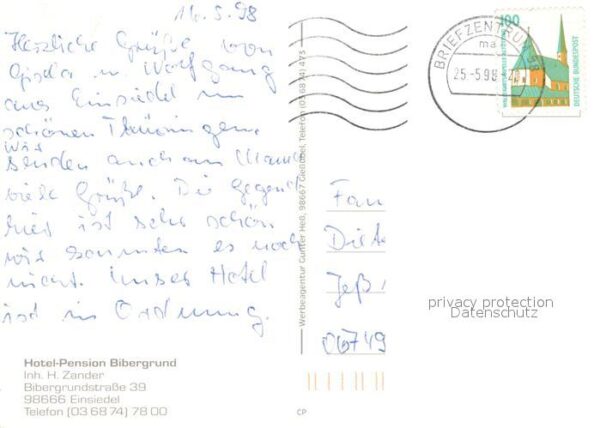 16.5.98
Herzliche Grüße von
Gisela u. Wolfgang
aus Einsiedel im
schönen Thüringen.
Wir
senden auch an
viele Grüße. Die Gegend
hier ist sehr schön
wir kannten es noch
nicht. Unser Hotel
ist in Ordnung.
Hotel-Pension Bibergrund
Inh. H. Zander
Bibergrundstraße 39
98666 Einsiedel
Telefon (03 68 74) 78 00
Werbeagentur Gunter Heß, 98667 Gießübel, Telefon (03 68 74) 473
BRIEFZENTRUM
ma
25.-5.98
100
DEUTSCHE BUNDESPOST
Fam
Diet
Jeß
06749
privacy protection
Datenschutz
CP